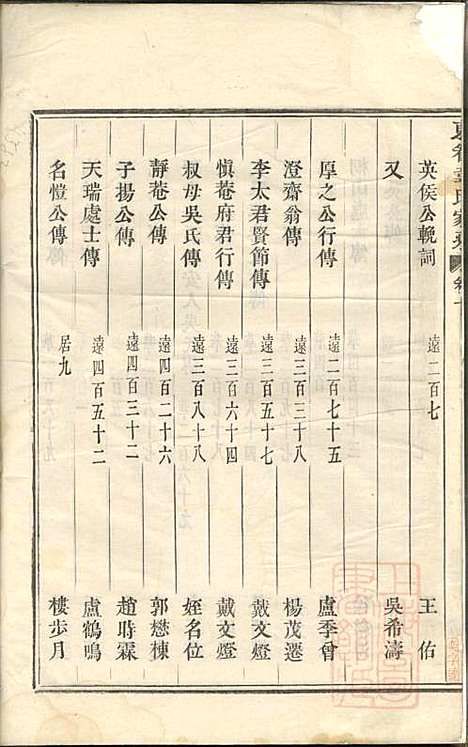 英侯公輓詞 遠二百七 王佑
又 吳希濤
厚之公行傳 遠二百七十五 盧季曾
澄齋翁傳 遠三百三十八 楊茂遷
李太君賢節傳 遠三百五十七 戴文燈
愼菴府君行傳 遠三百六十四 戴文燈
叔母吳氏傳 遠三百八十八 姪名位
靜菴公傳 遠四百二十六 郭懋棟
子揚公傳 遠四百三十二 趙時霖
天瑞處士傳 遠四百五十二 盧鶴鳴
名愷公傳 居九 樓步月